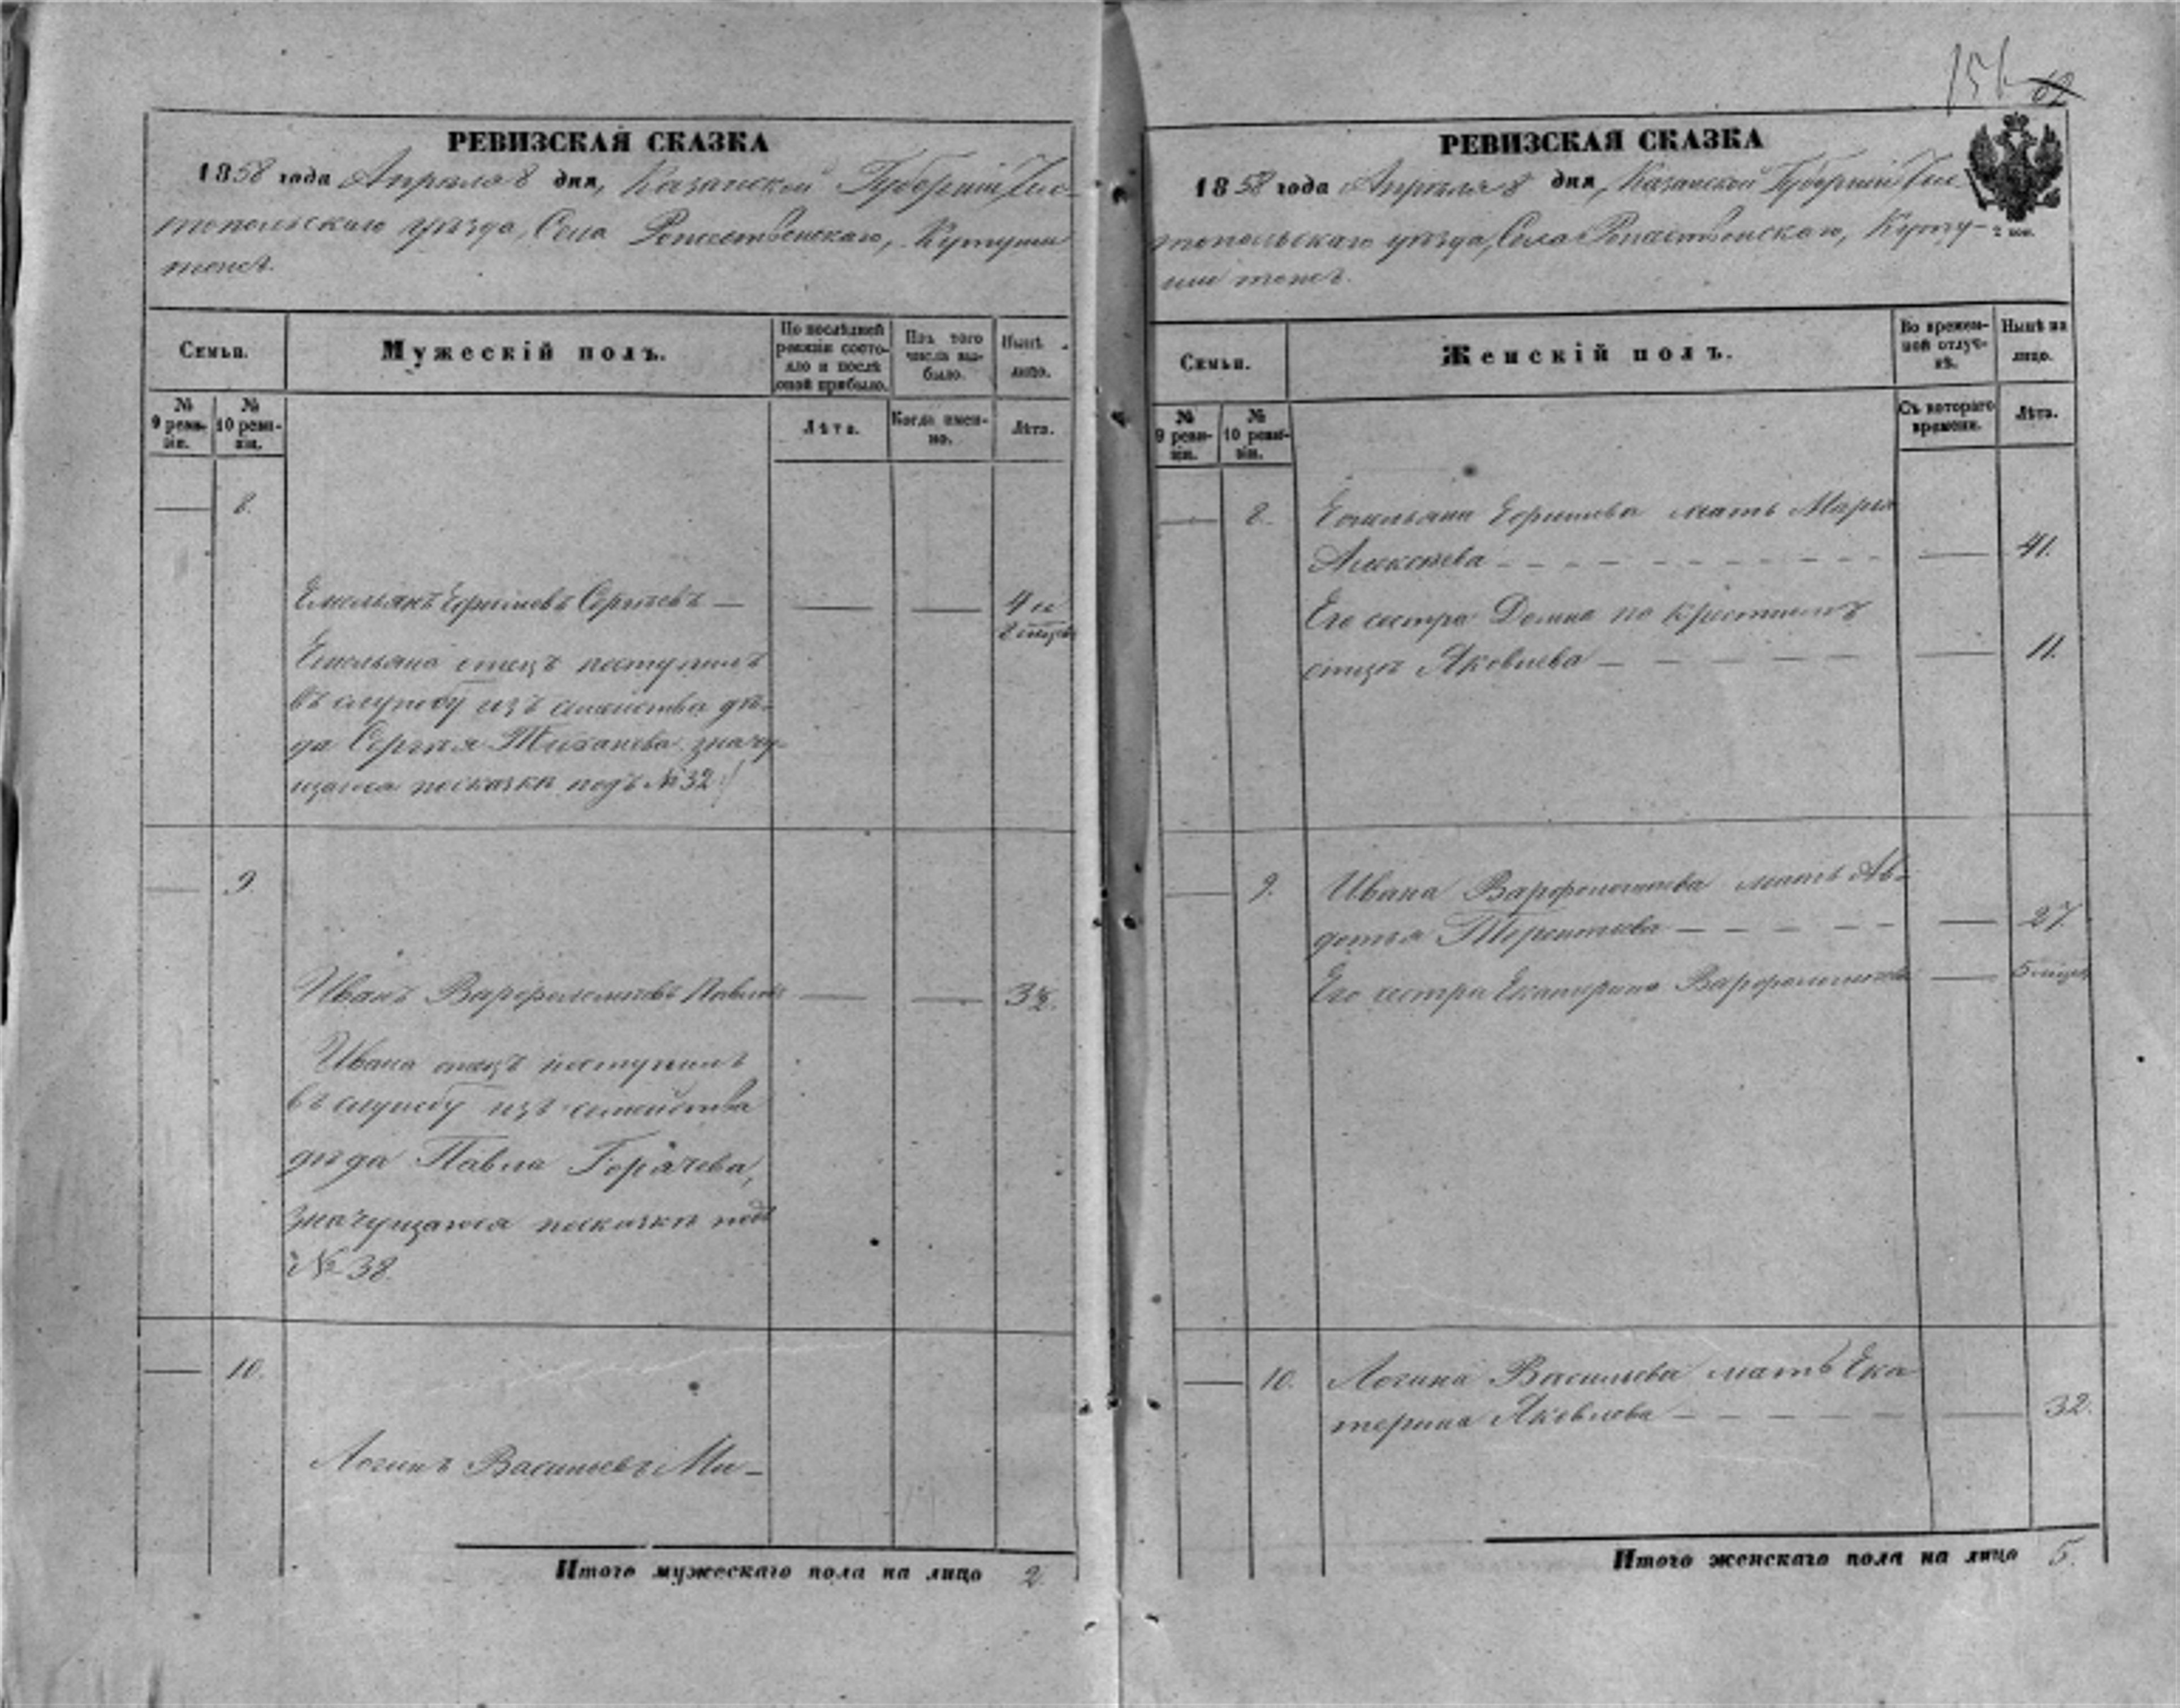 156 62
РЕВИЗСКАЯ СКАЗКА
1858 года Апреля 8 дня, Казанской Губерніи, Чис-
топольскаго уѣзда, Села Рожественскаго, Кутуши
тожъ.
Семьи.
Мужескій полъ.
По послѣдней
ревизіи состо-
яло и послѣ
оной прибыло.
Изъ того
числа вы-
было.
Нынѣ
лицо.
№
9 реви-
зіи.
№
10 реви-
зіи.
Лѣта.
Когда имен-
но.
Лѣта.
— 8.
Емельянъ Ефимовъ Сергѣевъ — — — 4 и
8 мѣсяц
Емельяна отецъ поступилъ
въ службу изъ семейства дѣ-
да Сергѣя Тиханова значу-
щагося посказкѣ подъ № 32.
— 9.
Иванъ Варфоломѣевъ Павловъ — — 3½.
Ивана отецъ поступилъ
въ службу изъ семейства
дѣда Павла Горачева,
значущагося посказкѣ подъ
№ 38.
— 10.
Логинъ Васильевъ Ми-
Итого мужескаго пола на лицо 2.
РЕВИЗСКАЯ СКАЗКА
1858 года Апреля 8 дня, Казанской Губерніи Чис-
топольскаго уѣзда, Села Рожественскаго, Куту-
ши тожъ.
2 коп.
Семьи.
Женскій полъ.
Во времен-
ной отлуч-
кѣ.
Нынѣ на
лицо.
№
9 реви-
зіи.
№
10 реви-
зіи.
Съ котораго
времени.
Лѣта.
— 8. Емельяна Ефимова мать Марья
Алексѣева — — 41.
Его сестра Домна по крестному
отцу Яковлева — — 11.
— 9. Ивана Варфоломѣева мать Ав-
дотья Терентьева — — 27.
Его сестра Екатерина Варфоломѣева — 5 мѣсяц
— 10. Логина Васильева мать Ека
терина Яковлева — — 32.
Итого женскаго пола на лицо 5.